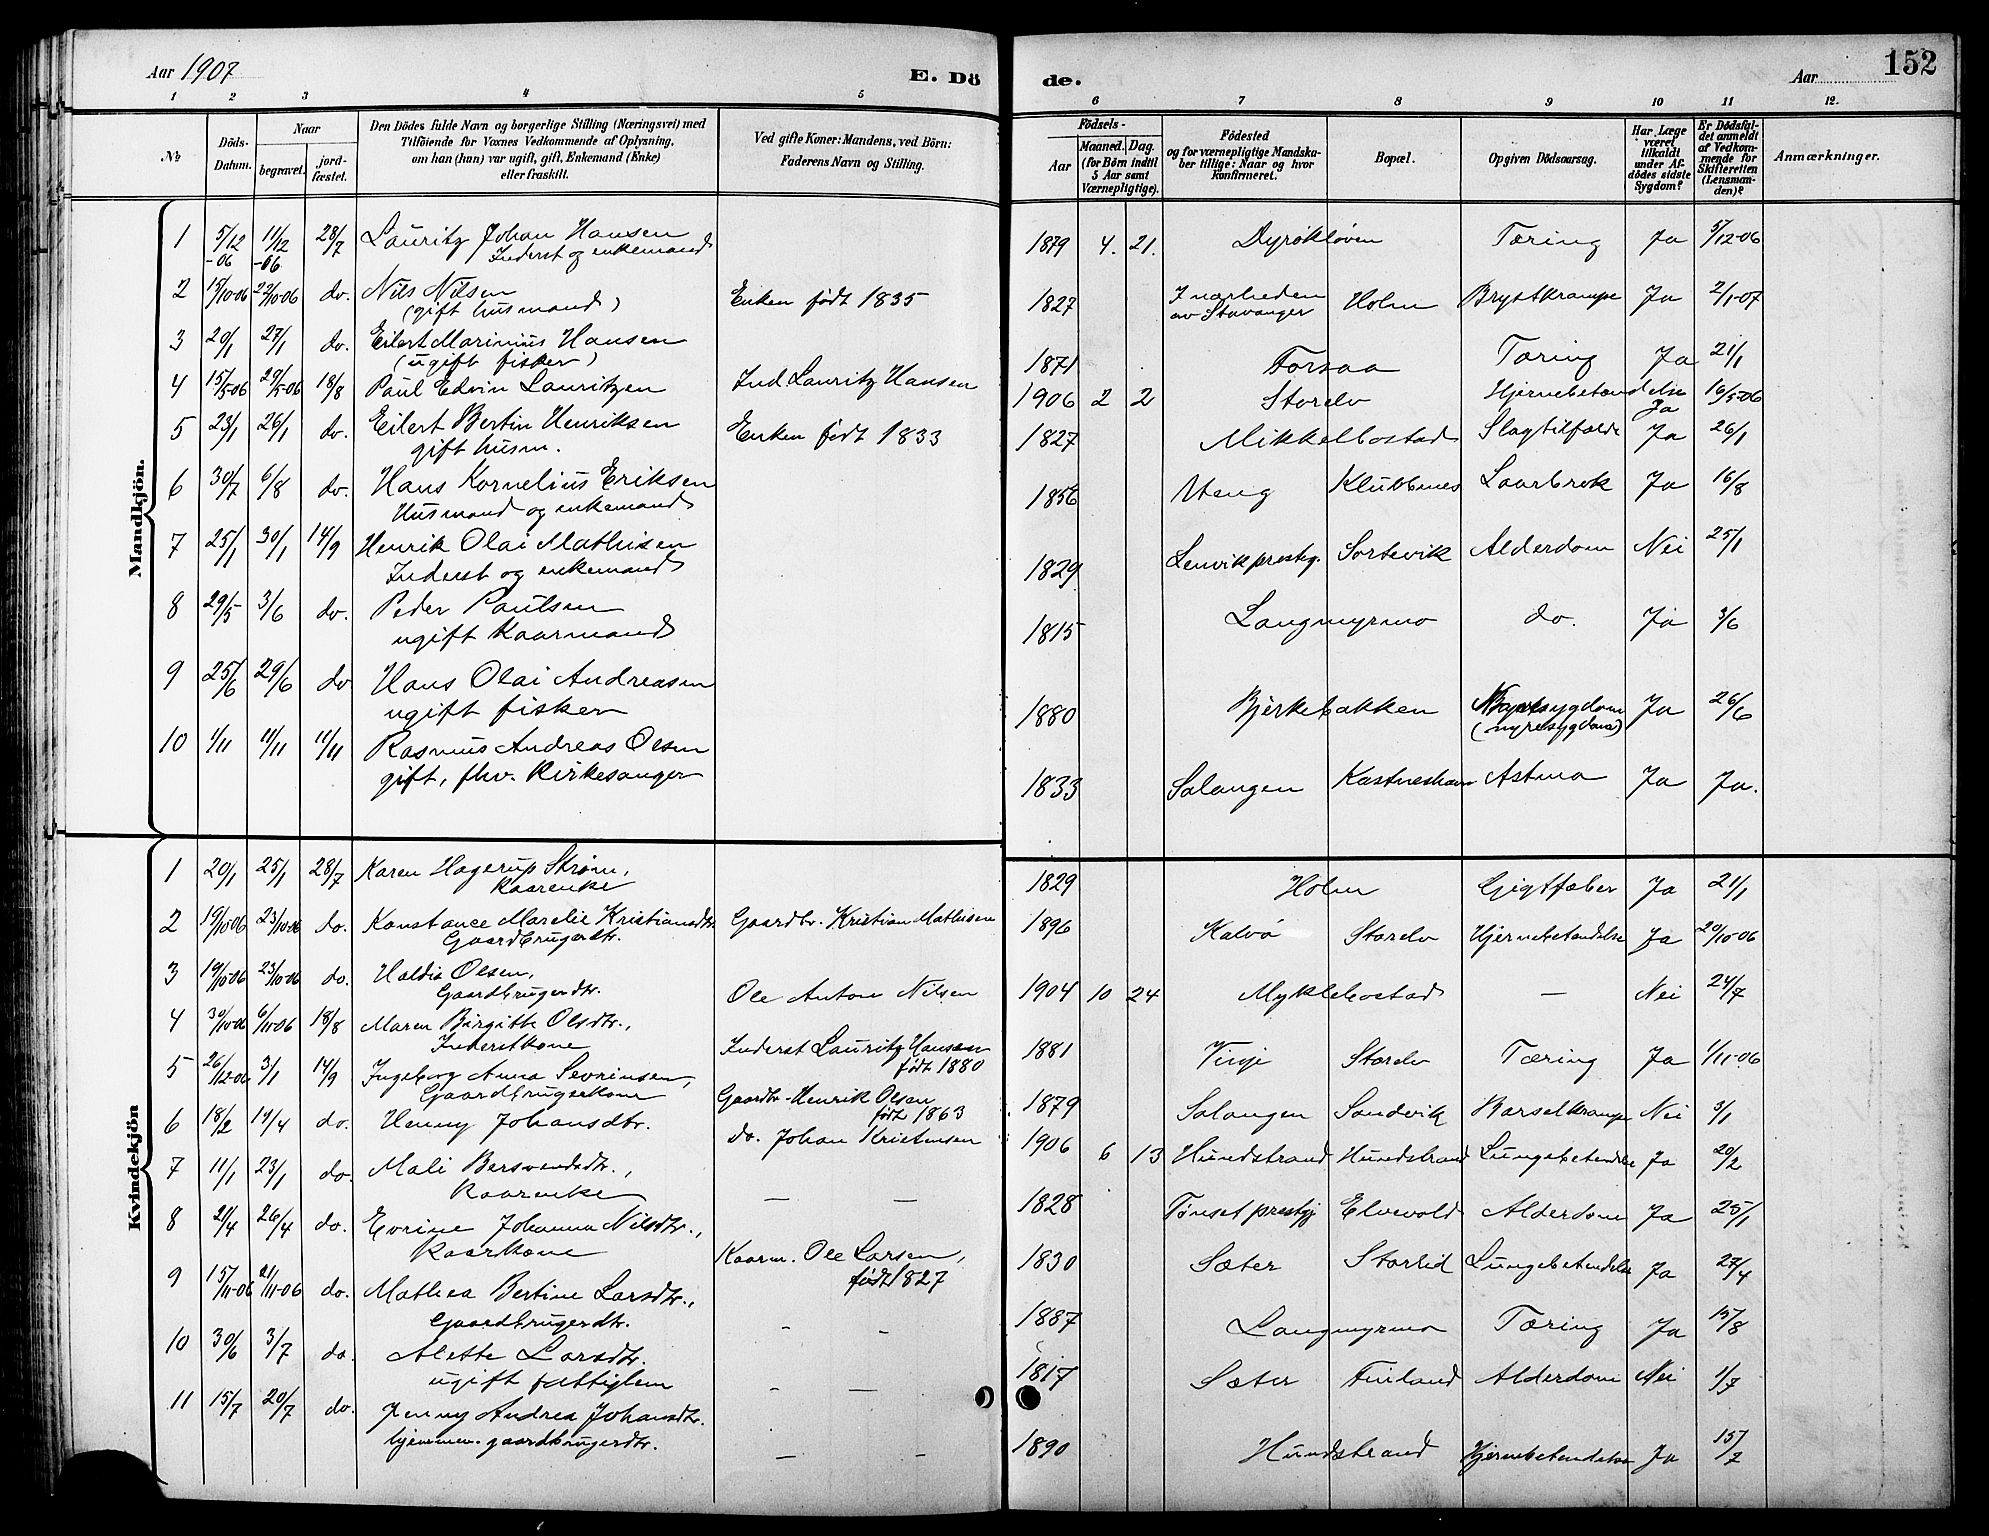 Aar 1907
E. Dö
de.
Aar
152
1 2 3 4 5 6 7 8 9 10 11 12.
№
Döds-
Datum.
Naar
begravet.
jord-
fæstet.
Den Dödes fulde Navn og borgerlige Stilling (Næringsvei) med
Tilföiende for Voxnes Vedkommende af Oplysning,
om han (hun) var ugift, gift, Enkemand (Enke)
eller fraskilt.
Ved gifte Koner: Mandens, ved Börn:
Faderens Navn og Stilling.
Födsels-
Aar
Maaned. Dag.
(for Börn indtil
5 Aar samt
Værnepligtige).
Födested
og for værnepligtige Mandska-
ber tillige: Naar og hvor
konfirmeret.
Bopæl.
Opgiven Dödsaarsag.
Har Læge
været
tilkaldt
under Af-
dödes sidste
Sygdom?
Er Dödsfal-
det anmeldt
af Vedkom-
mende for
Skifteretten
(Lensman-
den)?
Anmærkninger.
Mandkjön.
1 5/12-06 11/12-06 28/7 Lauritz Johan Hansen 1879 4. 21. Dyrökløven Tæring Ja 5/12-06
Inderst og enkemand
2 15/10-06 22/10-06 do. Nils Nilsen Enken født 1835 1827 I nærheden Holm Brystkrampe Ja 2/1-07
(gift husmand) av Stavanger
3 20/1 27/1 do. Eilert Marinius Hansen 1871 Forsaa Tæring Ja 21/1
(ugift fisker)
4 15/5-06 29/5-06 18/8 Paul Edvin Lauritzen Ind. Lauritz Hansen 1906 2 2 Storelv Hjernebetændelse Ja 16/5-06
5 23/1 26/1 do. Eilert Bertin Henriksen Enken født 1833 1827 Mikkelbostad Slagtilfælde Ja 26/1
gift husm.
6 30/7 6/8 do. Hans Kornelius Eriksen 1856 Moen Klubbenes Ja 16/8
Husmand og enkemand
7 25/1 30/1 14/9 Henrik Olai Mathisen 1829 Lenvik prestg. Sortevik Alderdom Nei 25/1
Inderst og enkemand
8 29/5 3/6 do. Peder Paulsen 1815 Langmyrmo do. Ja 3/6
ugift Kaarmand
9 25/6 29/6 do Hans Olai Andreasen 1880 Bjerkebakken Ja 26/6
ugift fisker (nyresygdom)
10 1/11 11/11 11/11 Rasmus Andreas Olsen 1833 Salangen Kastneshavn Astma Ja Ja.
gift, fhv. Kirkesanger
Kvindekjön
1 20/1 25/1 28/7 Karen Hagerup Strøm, 1829 Holm Gigtfeber Ja 21/1
Kaarenke
2 19/10-06 23/10-06 do. Konstance Marelie Kristiansdtr. Gaardbr. Kristian Mathisen 1896 Kalvö Storelv Hjernebetændelse Ja 20/10-06
Gaardbrugerdtr.
3 19/10-06 23/10-06 do. Haldis Olsen, Ole Anton Nilsen 1904 10 24 Myklebostad — Nei 24/7
Gaardbrugerdtr.
4 30/10-06 6/11-06 18/8 Maren Birgitte Olsdtr., Inderst Lauritz Hansen 1881 Vinje Storelv Tæring Ja 1/11-06
Inderstkone født 1880
5 26/12-06 3/1 14/9 Ingeborg Anna Sevrinsen, Gaardbr. Henrik Olsen 1879 Salangen Sandvik Barselkrampe Nei 3/1
Gaardbrugerkone født 1863
6 18/2 14/4 do. Henny Johansdtr. do. Johan Kristensen 1906 6 13 Hundstrand Hundstrand Lungebetændelse Ja 20/2
7 11/1 23/1 do. Mali Bersvendsdtr., — — 1828 Tönset prestgj Elvevold Alderdom Ja 25/1
Kaarenke
8 21/4 26/4 do. Evrine Johanna Nilsdtr., Kaarm. Ole Larsen, 1830 Sæter Storlid Lungebetændelse Ja 27/4
Kaarkone født 1827
9 15/11-06 21/11-06 do. Mathea Bertine Larsdtr., - - 1887 Langmyrmo Tæring Ja 15/8
Gaardbrugerdtr.
10 30/6 3/7 do. Alette Larsdtr. - — 1817 Sæter Finland Alderdom Nei 1/7
ugift fattiglem
11 15/7 20/7 do. Jenny Andrea Johansdtr. — — 1890 Hundstrand Hjernebetændelse Ja 15/7
hjemmev. gaardbrugerdtr.